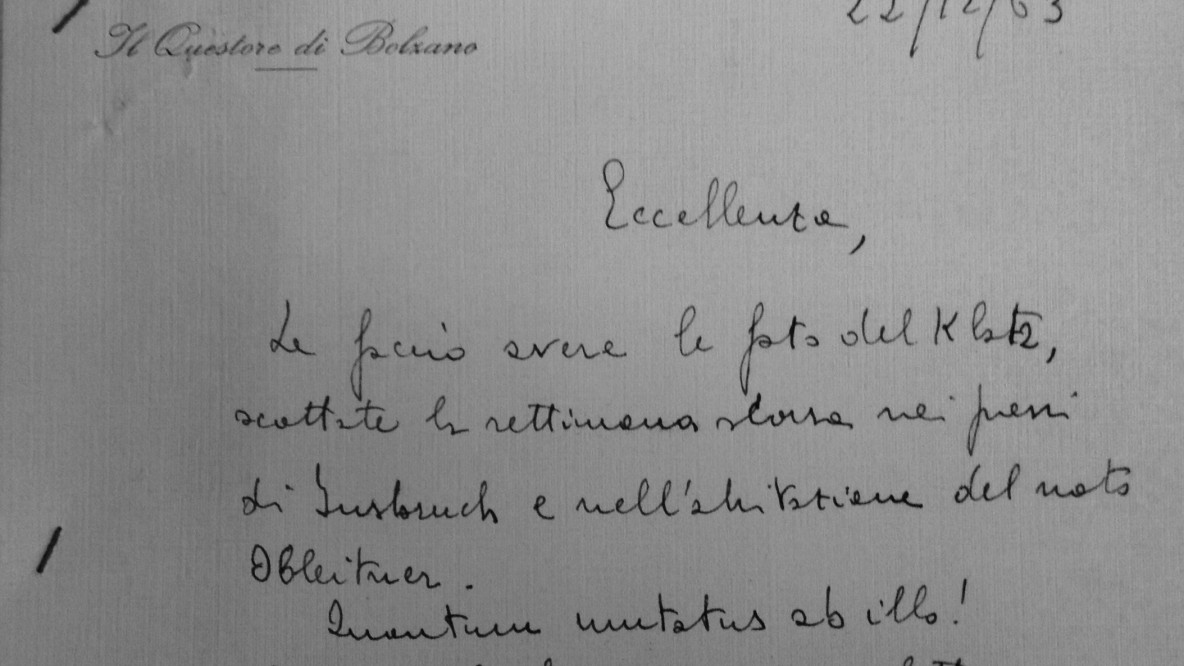 Il Questore di Bolzano
22/12/63
Eccellenza,
Le faccio avere le foto del Klotz,
scattate la settimana scorsa nei pressi
di Insbruch e nell'abitazione del noto
Obleitner.
Quantum mutatus ab illo!